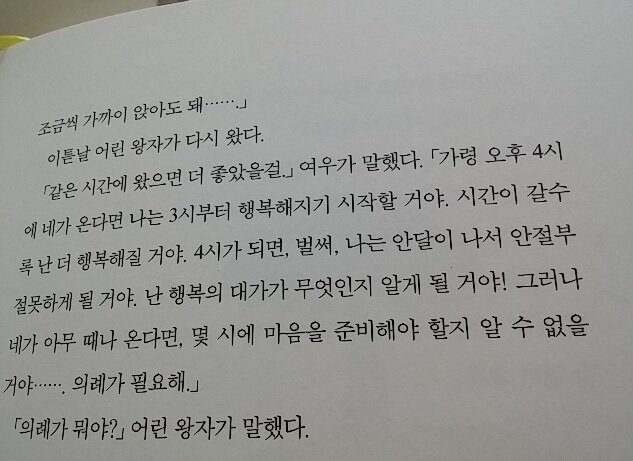 조금씩 가까이 앉아도 돼…….」
이튿날 어린 왕자가 다시 왔다.
「같은 시간에 왔으면 더 좋았을걸.」 여우가 말했다. 「가령 오후 4시
에 네가 온다면 나는 3시부터 행복해지기 시작할 거야. 시간이 갈수
록 난 더 행복해질 거야. 4시가 되면, 벌써, 나는 안달이 나서 안절부
절못하게 될 거야. 난 행복의 대가가 무엇인지 알게 될 거야! 그러나
네가 아무 때나 온다면, 몇 시에 마음을 준비해야 할지 알 수 없을
거야……. 의례가 필요해.」
「의례가 뭐야?」 어린 왕자가 말했다.